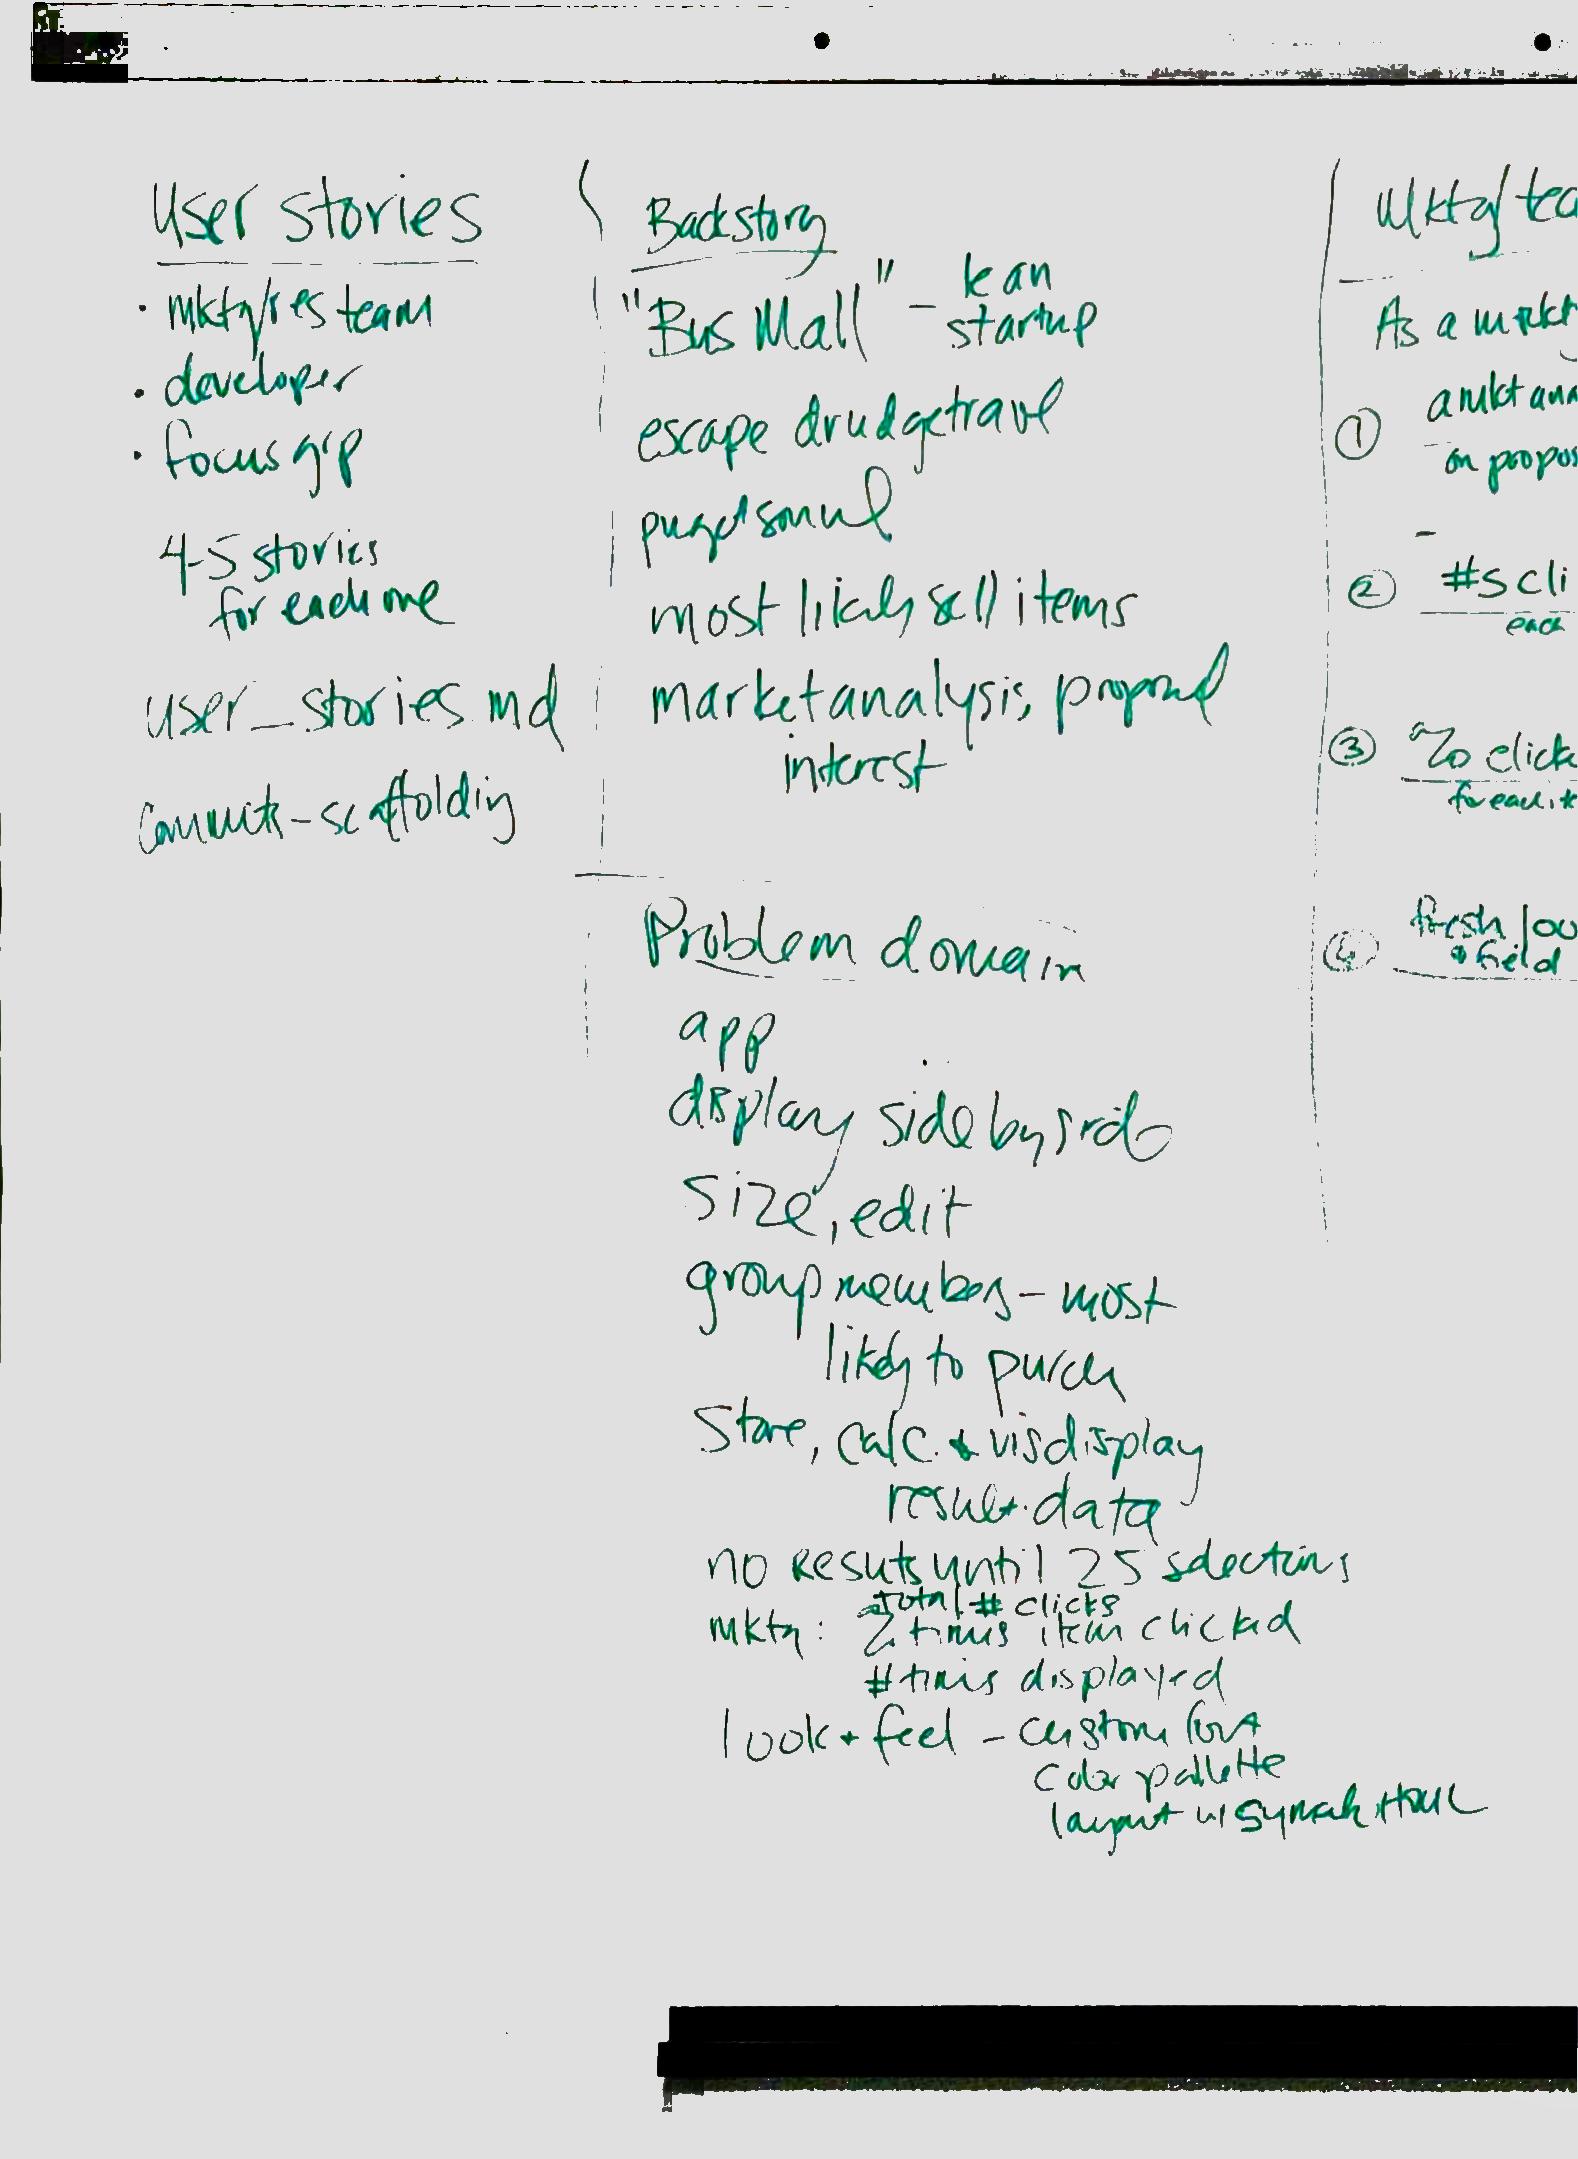 User stories
• mktg/res team
• developer
• focus grp
4-5 stories
for each one
user_stories md
commits - scaffolding
Backstory
"Bus Mall" - lean
startup
escape drudge travel
puget sound
most likely sell items
market analysis, proposed
interest
Problem domain
app
display side by side
size, edit
group members - most
likely to purch
Store, calc. + vis display
result. data
no Results until 25 selections
total # clicks
mktg: times item clicked
# times displayed
look + feel - custom font
color pallette
layout w/
HTML
Mktg/ tea
As a mrkt
① a mkt ana
on propos
-
② #s cli
each
③ % click
for each it
④ fresh loo
+ field